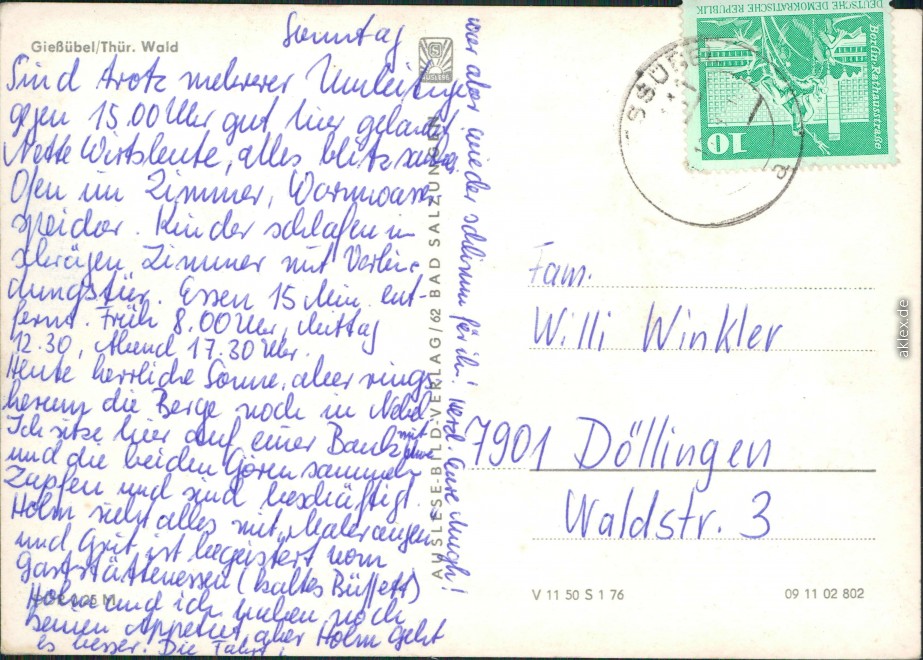 Gießübel/Thür. Wald
Sonntag
Sind trotz mehrerer Umleitunge
gegen 15.00 Uhr gut hier gelandet
Nette Wirtsleute, alles blitzsauber
Ofen im Zimmer, Warmwasser
speicher. Kinder schlafen im
schrägen Zimmer mit Verbin-
dungstür. Essen 15 Min. ent-
fernt. Früh 8.00 Uhr, Mittag
12.30, Abend 17.30 Uhr.
Heute herrliche Sonne, aber rings
herum die Berge noch in Nebel
Ich sitze hier auf einer Bank
und die beiden Gören sammeln
Zapfen und sind beschäftigt.
Holm sieht alles mit "Maleraugen
und Grit ist begeistert vom
Gaststättenessen (kaltes Büffett)
Holm und ich haben noch
keinen Appetit, aber Holm geht
es besser. Die Fahrt
war aber wieder schlimm für ihn! Herzl. Eure
AUSLESE
AUSLESE-BILD-VERLAG/62 BAD SALZUNGEN
DEUTSCHE DEMOKRATISCHE REPUBLIK
Berlin, Rathausstraße
10
a
Fam.
Willi Winkler
7901 Döllingen
Waldstr. 3
V 11 50 S 1 76
09 11 02 802
akleX.de